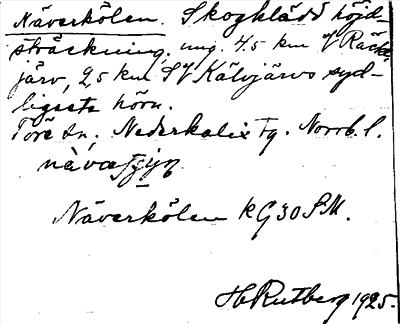 Näverkölen. Skogklädd höjd-
sträckning, ung. 4,5 km V Räck-
järv, 2,5 km SV Kälvjärvs syd-
ligaste hörn.
Töre sn, Nederkalix tg. Norrb. l.
Näverkölen KG 30 SM.
H Rutberg 1925.